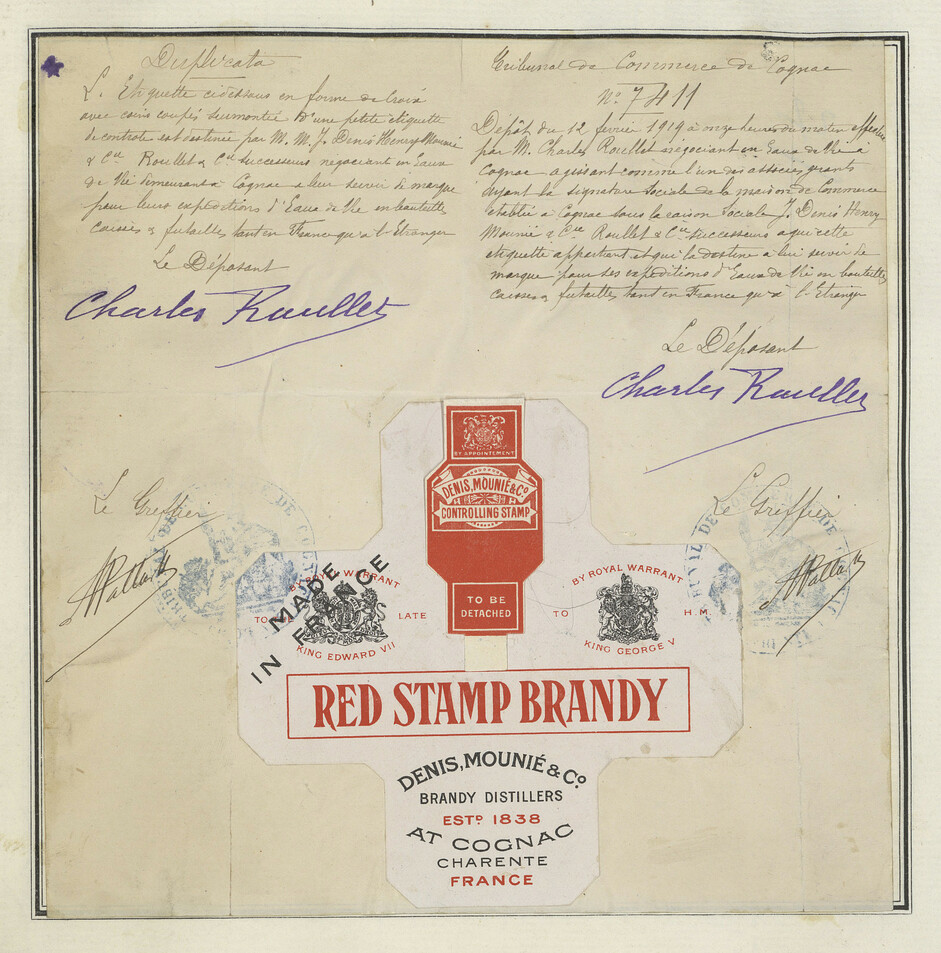 Duplicata
L. Etiquette cidessus en forme de Croix
avec coins coupés surmontée d'une petite étiquette
de controle est destinée par M. M. J. Denis Henry Mounié
& Cie Roullet & Cie successeurs négociant en Eaux
de Vie demeurant à Cognac a leur servir de marque
pour leurs expéditions d'Eaux de Vie en bouteilles
caisses & futailles tant en France qu'à l'Etranger
Le Déposant
Charles Roullet
Tribunal de Commerce de Cognac
No 7411
Dépôt du 12 février 1919 à onze heures du matin effectué
par M. Charles Roullet négociant en Eaux de Vie à
Cognac agissant comme l'un des associés gérants
ayant la signature sociale de la maison de Commerce
établie à Cognac sous la raison sociale J. Denis Henry
Mounié & Cie Roullet & Cie successeurs a qui cette
étiquette appartient et qui la destine a lui servir de
marque pour ses expéditions d'Eaux de Vie en bouteilles
caisses & futailles tant en France qu'à l'Etranger
Le Déposant
Charles Roullet
Le Greffier
Le Greffier
BY APPOINTEMENT
DENIS, MOUNIÉ & Co
CONTROLLING STAMP
TO BE
DETACHED
BY ROYAL WARRANT
LATE
KING EDWARD VII
MADE
IN FRANCE
BY ROYAL WARRANT
TO H.M.
KING GEORGE V
RED STAMP BRANDY
DENIS, MOUNIÉ & Co.
BRANDY DISTILLERS
ESTD 1838
AT COGNAC
CHARENTE
FRANCE